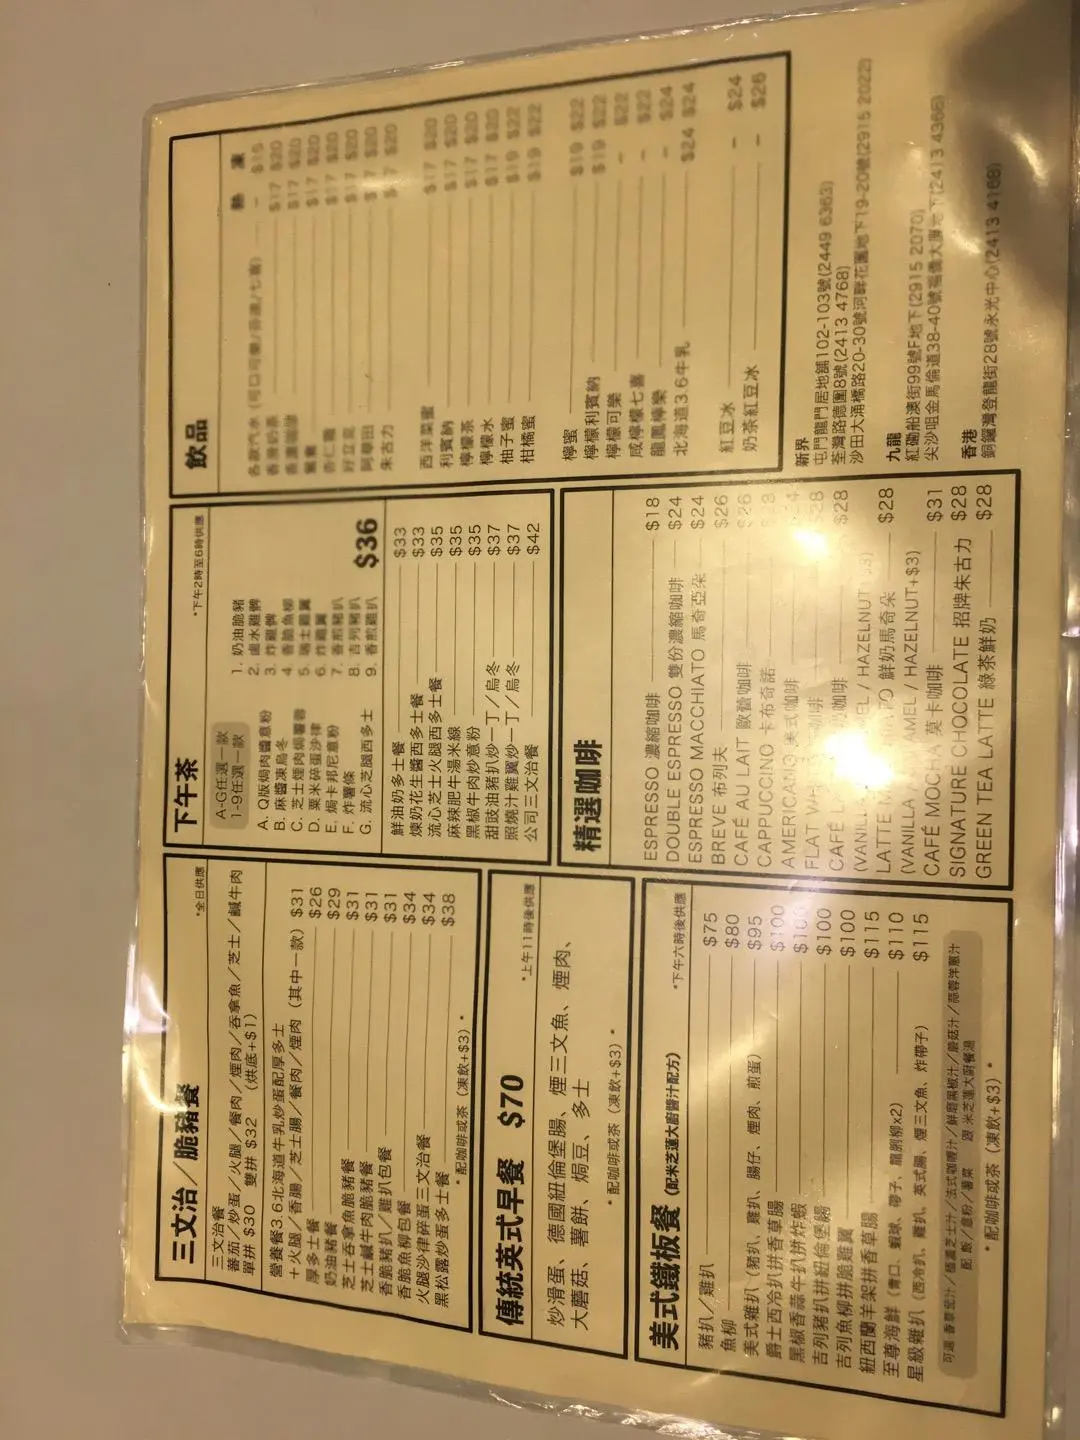 三文治／脆豬餐
*全日供應
三文治餐
蕃茄／炒蛋／火腿／餐肉／煙肉／吞拿魚／芝士／鹹牛肉
單拼 $30 雙拼 $32 （烘底+$1）
營養餐3.6北海道牛乳炒蛋配厚多士
＋火腿／香腸／芝士腸／餐肉／煙肉（其中一款） $31
厚多士餐 $26
奶油豬餐 $29
芝士吞拿魚脆豬餐 $31
芝士鹹牛肉脆豬餐 $31
香脆豬扒／雞扒包餐 $31
香脆魚柳包餐 $34
火腿沙律碎蛋三文治餐 $34
黑松露炒蛋多士餐 $38
* 配咖啡或茶（凍飲+$3）*
傳統英式早餐 $70
*上午11時後供應
炒滑蛋、德國紐倫堡腸、煙三文魚、煙肉、
大蘑菇、薯餅、焗豆、多士
* 配咖啡或茶（凍飲+$3）*
美式鐵板餐（配米芝蓮大廚醬汁配方）
*下午六時後供應
豬扒／雞扒 $75
魚柳 $80
美式雜扒（豬扒、雞扒、腸仔、煙肉、煎蛋） $95
爵士西冷扒拼香草腸 $100
黑椒香蒜牛扒拼炸蝦 $100
吉列豬扒拼紐倫堡腸 $100
吉列魚柳拼脆雞翼 $100
紐西蘭羊架拼香草腸 $115
至尊海鮮（青口、蝦球、帶子、龍脷柳x2） $110
星級雜扒（西冷扒、雞扒、英式腸、煙三文魚、炸帶子） $115
配 飯／意粉／薯菜 跟 米芝蓮大廚餐湯
* 配咖啡或茶（凍飲+$3）*
下午茶
*下午2時至6時供應
A-G任選一款
1-9任選一款
A. Q版焗肉醬意粉
B. 麻醬凍烏冬
C. 芝士煙肉焗薯蓉
D. 粟米碎蛋沙律
E. 焗卡邦尼意粉
F. 炸薯條
G. 流心芝腿西多士
1. 奶油脆豬
2. 鹵水雞髀
3. 炸雞髀
4. 香脆魚柳
5. 瑞士雞翼
6. 炸雞翼
7. 香煎豬扒
8. 吉列豬扒
9. 香煎雞扒
$36
鮮油奶多士餐 $33
煉奶花生醬西多士餐 $33
流心芝士火腿西多士餐 $35
麻辣肥牛湯米線 $35
黑椒牛肉炒意粉 $35
甜豉油豬扒炒一丁／烏冬 $37
照燒汁雞翼炒一丁／烏冬 $37
公司三文治餐 $42
精選咖啡
ESPRESSO 濃縮咖啡 $18
DOUBLE ESPRESSO 雙份濃縮咖啡 $24
ESPRESSO MACCHIATO 馬奇亞朵 $24
BREVE 布列夫 $26
CAFÉ AU LAIT 歐蕾咖啡 $26
CAPPUCCINO 卡布奇諾
AMERICANO 美式咖啡
FLAT
CAFÉ $28
LATTE 鮮奶馬奇朵 $28
(VANILLA / HAZELNUT+$3)
CAFÉ MOCHA 莫卡咖啡 $31
SIGNATURE CHOCOLATE 招牌朱古力 $28
GREEN TEA LATTE 綠茶鮮奶 $28
飲品
熱 凍
各款汽水 – $15
香滑奶茶 $17 $20
香濃咖啡 $17 $20
鴛鴦 $17 $20
杏仁霜 $17 $20
好立克 $17 $20
阿華田 $17 $20
朱古力 $17 $20
西洋菜蜜 $17 $20
利賓納 $17 $20
檸檬茶 $17 $20
檸檬水 $17 $20
柚子蜜 $19 $22
柑橘蜜 $19 $22
檸蜜 $19 $22
檸檬利賓納 $19 $22
檸檬可樂 – $22
咸檸檬七喜 – $22
龍鳳檸樂 – $24
北海道3.6牛乳 $24 $24
紅豆冰 – $24
奶茶紅豆冰 – $26
新界
屯門龍門居地舖102-103號(2449 6363)
荃灣路德圍8號(2413 4768)
沙田大涌橋路20-30號河畔花園地下19-20號(2915 2022)
九龍
紅磡船澳街99號F地下(2915 2070)
尖沙咀金馬倫道38-40號福僑大廈地下(2413 4366)
香港
銅鑼灣登龍街28號永光中心(2413 4168)